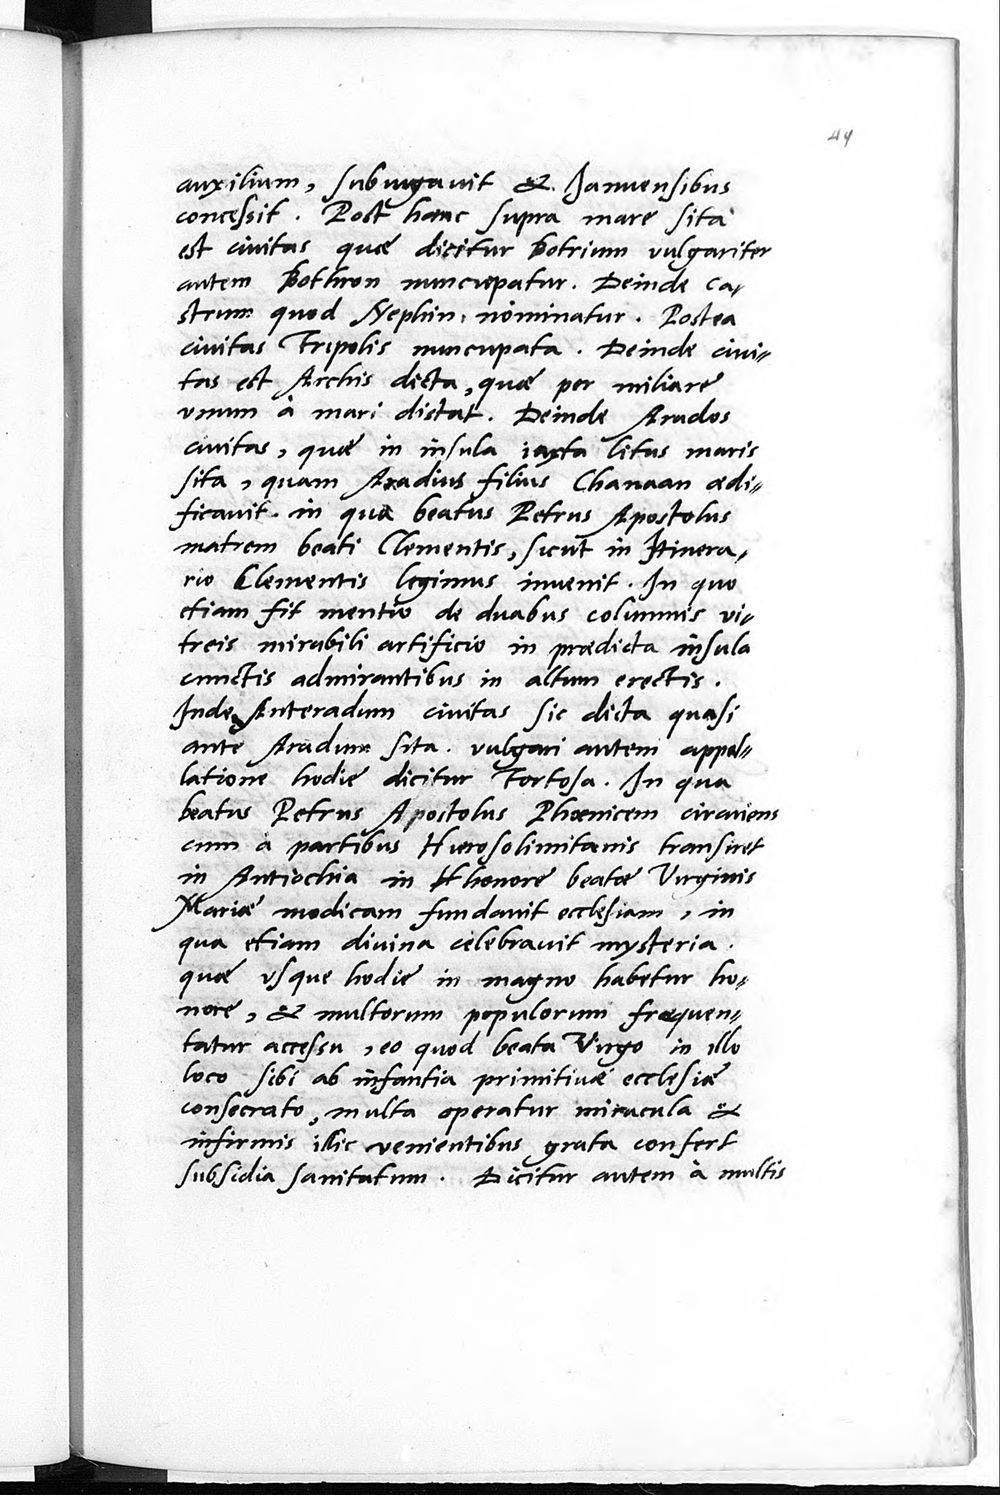 44
auxilium, subiugauit & Januensibus
concessit. Post hanc supra mare sita
est ciuitas quæ dicitur Botrium vulgariter
autem Bothron nuncupatur. Deinde ca-
strum quod Nephin, nominatur. Postea
ciuitas Tripolis nuncupata. Deinde ciui-
tas est Archis dicta, quæ per miliare
vnum à mari distat. Deinde Arados
ciuitas, quæ in insula iuxta litus maris
sita, quam Aradius filius Chanaan ædi-
ficauit. in qua beatus Petrus Apostolus
matrem beati Clementis, sicut in Itinera-
rio Clementis legimus inuenit. In quo
etiam fit mentio de duabus columnis vi-
treis mirabili artificio in prædicta insula
cunctis admirantibus in altum erectis.
Inde Anteradum ciuitas sic dicta quasi
ante Aradum sita. vulgari autem appel-
latione hodie dicitur Tortosa. In qua
beatus Petrus Apostolus Phœnicem circuiens
cum à partibus Hierosolimitanis transiret
in Antiochia in honore beatæ Virginis
Mariæ modicam fundauit ecclesiam, in
qua etiam diuina celebrauit mysteria.
quæ vsque hodie in magno habetur ho-
nore, & multorum populorum fræquen-
tatur accessu, eo quod beata Virgo in illo
loco sibi ab infantia primitiuæ ecclesiæ
consecrato, multa operatur miracula &
infirmis illic venientibus grata confert
subsidia sanitatum. Dicitur autem à multis